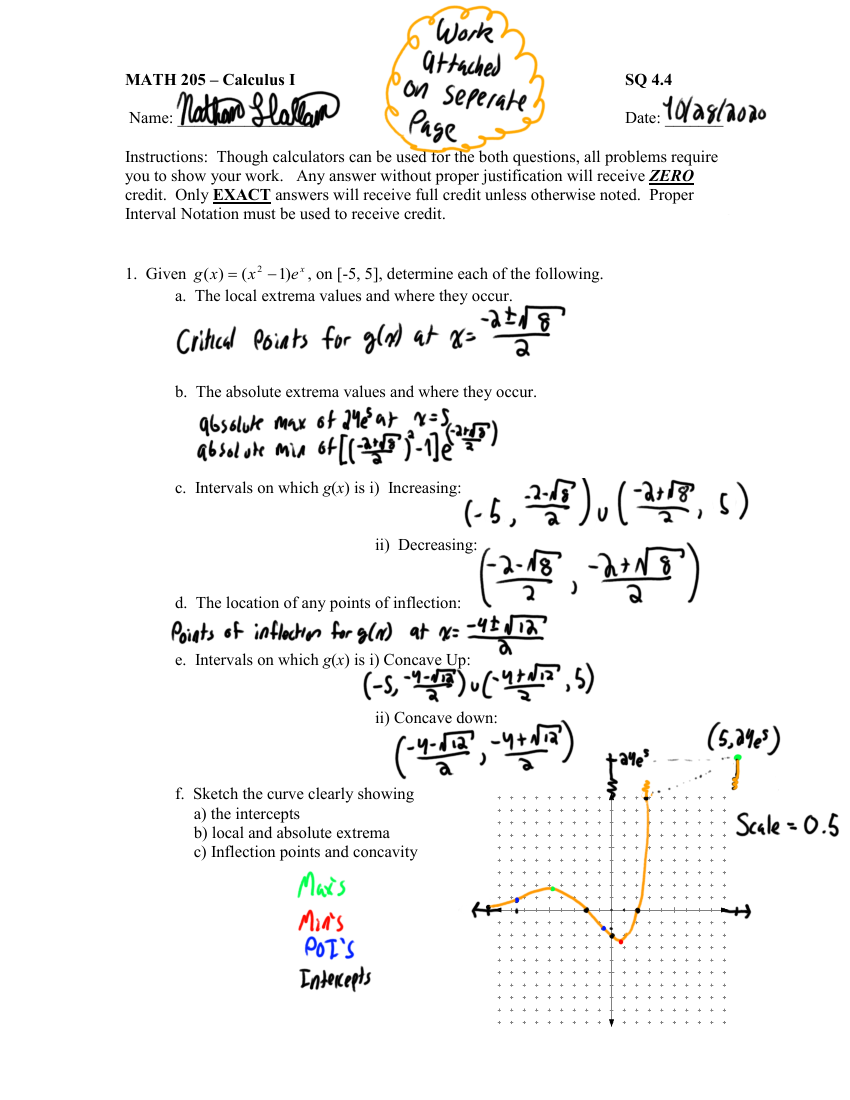 Work
attached
on seperate
Page
MATH 205 – Calculus I
SQ 4.4
Name: Nathan
Date: 10/28/2020
Instructions: Though calculators can be used for the both questions, all problems require
you to show your work. Any answer without proper justification will receive ZERO
credit. Only EXACT answers will receive full credit unless otherwise noted. Proper
Interval Notation must be used to receive credit.
1. Given g(x) = (x² −1)eˣ, on [-5, 5], determine each of the following.
a. The local extrema values and where they occur.
Critical Points for g(x) at x= (-2±√8)/2
b. The absolute extrema values and where they occur.
absolute max of 24e⁵ at x=5
absolute min of [((-2+√8)/2)²-1]e^((-2+√8)/2)
c. Intervals on which g(x) is i) Increasing: (-5, (-2-√8)/2) ∪ ((-2+√8)/2, 5)
ii) Decreasing: ((-2-√8)/2, (-2+√8)/2)
d. The location of any points of inflection:
Points of inflection for g(x) at x= (-4±√12)/2
e. Intervals on which g(x) is i) Concave Up:
(-5, (-4-√12)/2) ∪ ((-4+√12)/2, 5)
ii) Concave down:
((-4-√12)/2, (-4+√12)/2)
24e⁵
(5, 24e⁵)
f. Sketch the curve clearly showing
a) the intercepts
b) local and absolute extrema
c) Inflection points and concavity
Scale = 0.5
Max's
Min's
POI's
Intercepts